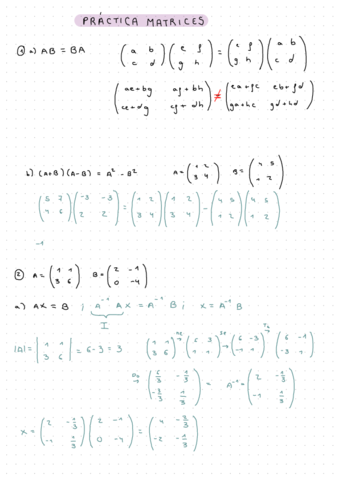 PRÁCTICA MATRICES
① a) AB = BA (a b c d)(e f g h) = (e f g h)(a b c d)
(ae+bg af+bh ce+dg cf+dh) ≠ (ea+fc eb+fd ga+hc gd+hd)
b) (A+B)(A-B) = A² - B² A = (1 2 3 4) B = (4 5 1 2)
(5 7 4 6)(-3 -3 2 2) = (1 2 3 4)(1 2 3 4) - (4 5 1 2)(4 5 1 2)
② A = (1 1 3 6) B = (2 -1 0 -4)
a) AX = B ; A⁻¹ AX = A⁻¹ B ; X = A⁻¹ B
I
|A| = |1 1 3 6| = 6-3 = 3 (1 1 3 6) → (6 3 1 1) → (6 -3 -1 1) → (6 -1 -3 1)
A⁻¹ = (2 -1/3 -1 1/3)
X = (2 -1/3 -1 1/3)(2 -1 0 -4) =